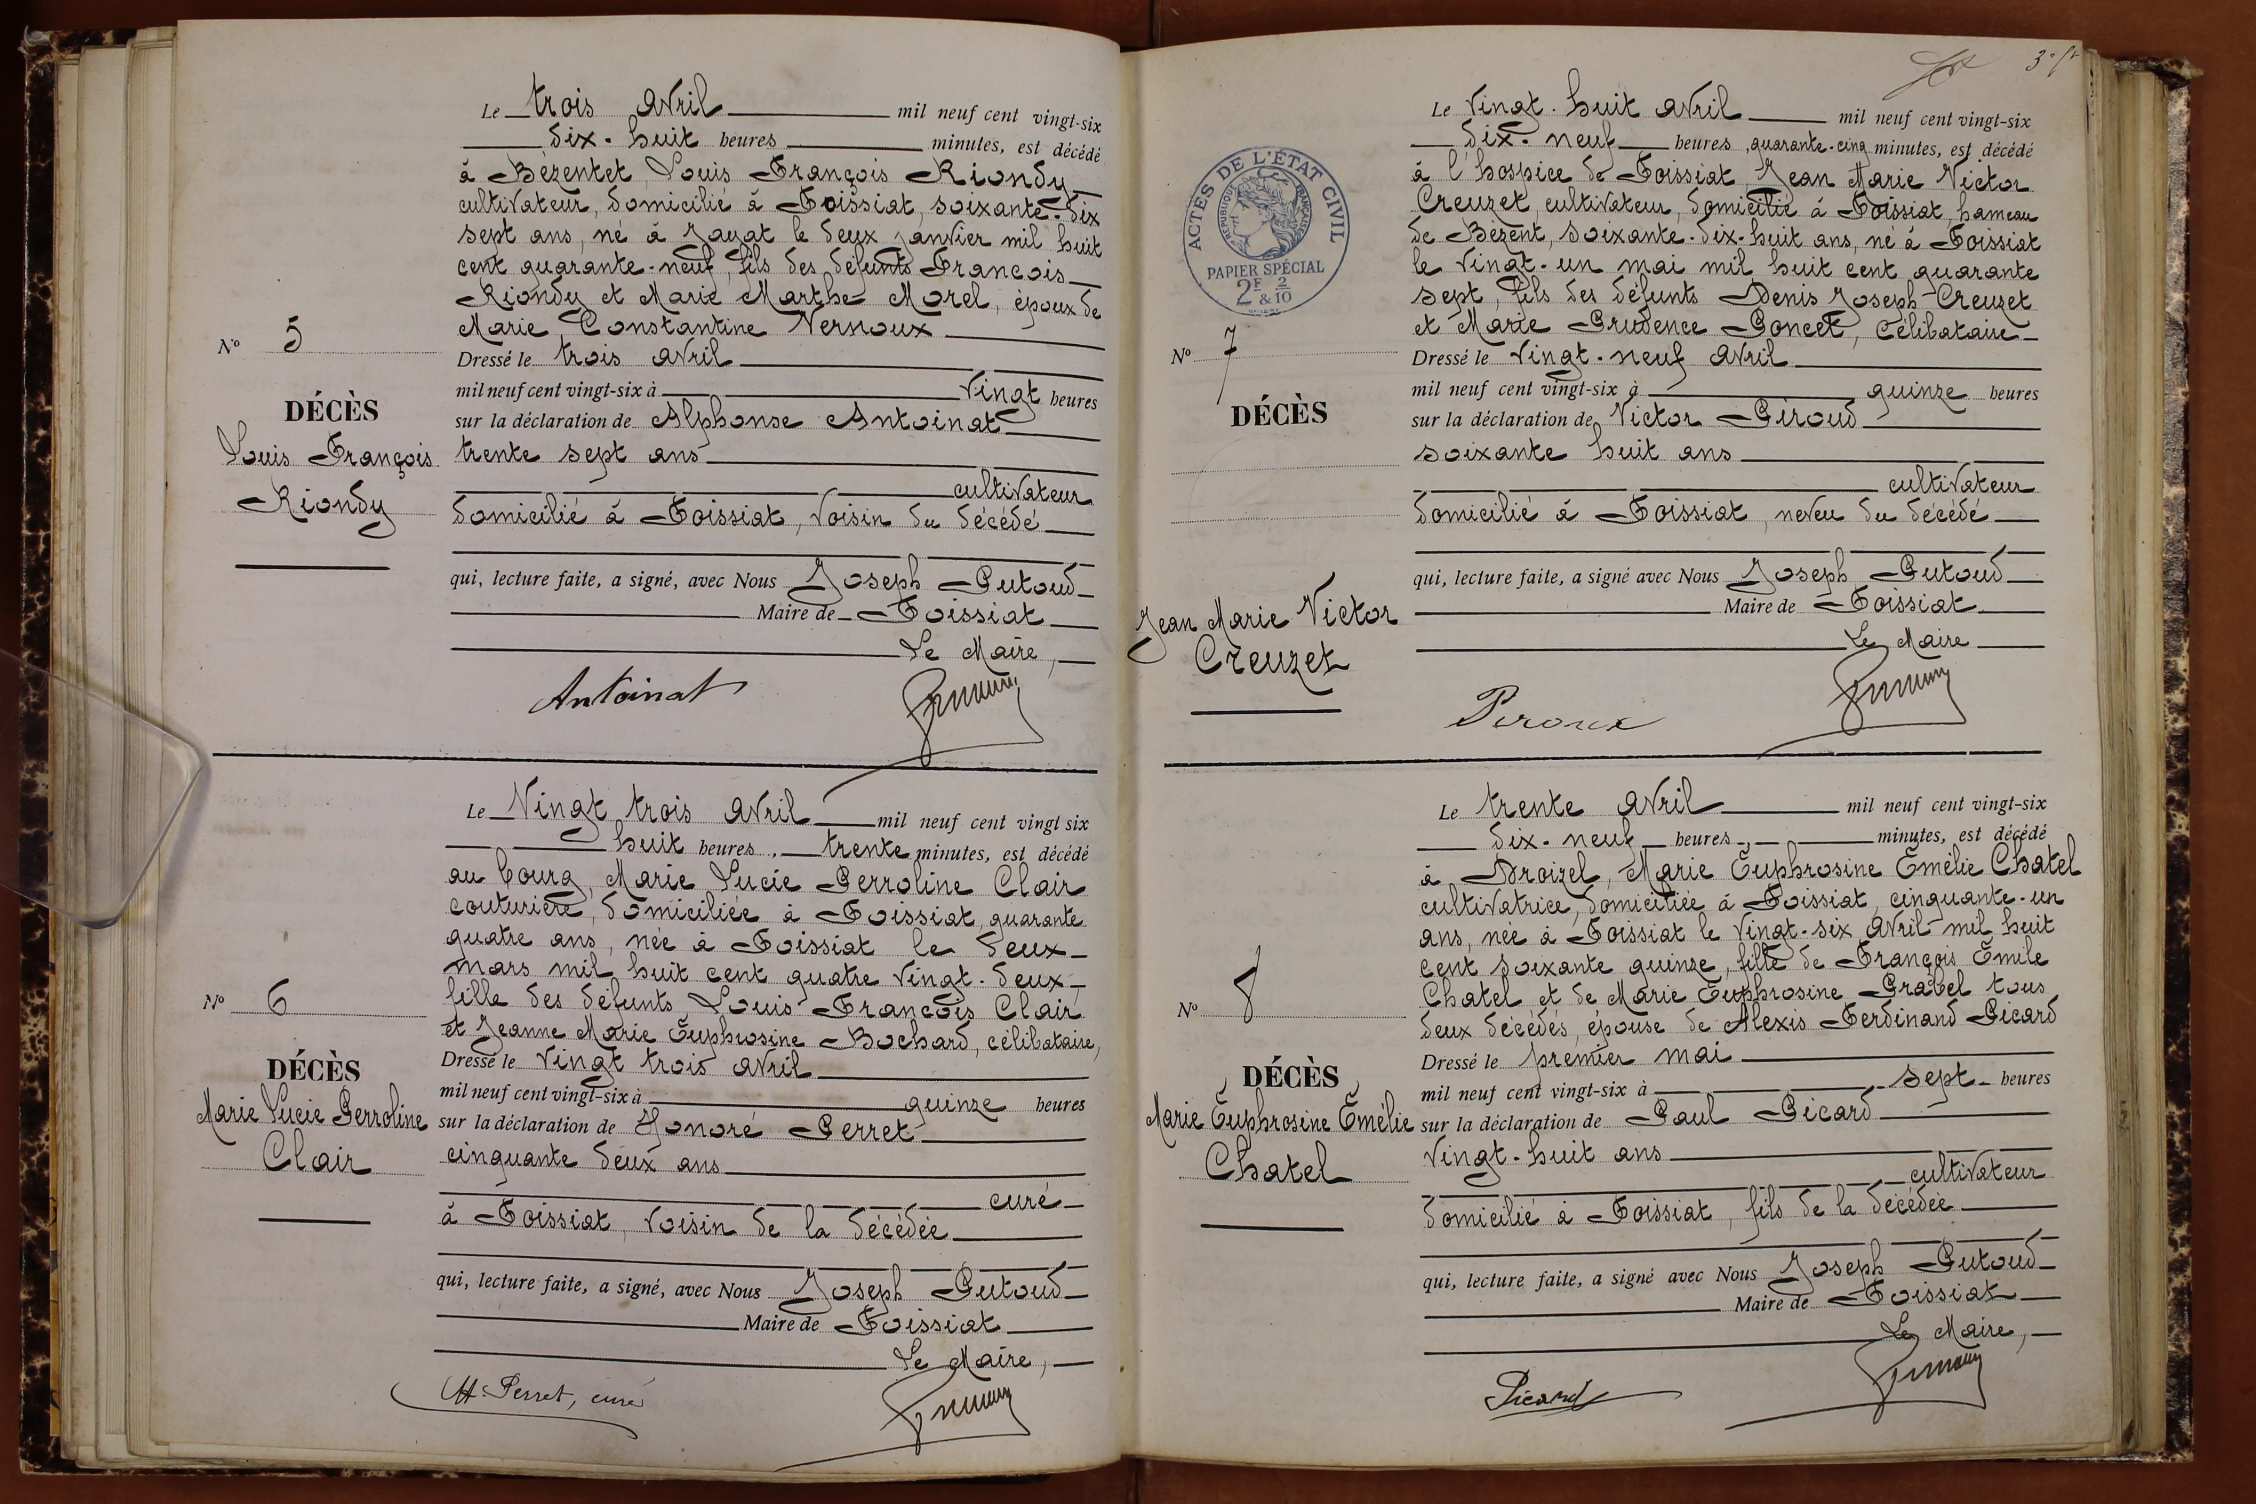 Le trois avril mil neuf cent vingt-six
dix-huit heures minutes, est décédé
à Bézentet, Louis François Riondy
cultivateur, domicilié à Foissiat, soixante-dix
sept ans, né à Jayat le deux janvier mil huit
cent quarante-neuf, fils des défunts François
Riondy et Marie Marthe Morel, époux de
Marie Constantine Vernoux
N° 5
Dressé le trois avril
mil neuf cent vingt-six à vingt heures
DÉCÈS
sur la déclaration de Alphonse Antoinat
Louis François
trente sept ans
cultivateur
Riondy
domicilié à Foissiat, voisin du décédé
qui, lecture faite, a signé, avec Nous Joseph Putoud
Maire de Foissiat
Le Maire,
Antoinat
Le Vingt trois avril mil neuf cent vingt six
huit heures, trente minutes, est décédé
au bourg, Marie Lucie Perroline Clair
couturière, domiciliée à Foissiat, quarante
quatre ans, née à Foissiat le deux
mars mil huit cent quatre vingt-deux
fille des défunts Louis François Clair
et Jeanne Marie Euphrosine Bochard, célibataire,
N° 6
Dressé le vingt trois avril
DÉCÈS
mil neuf cent vingt-six à quinze heures
Marie Lucie Perroline
sur la déclaration de Honoré Perret
Clair
cinquante deux ans
curé
à Foissiat, voisin de la décédée
qui, lecture faite, a signé, avec Nous Joseph Putoud
Maire de Foissiat
Le Maire,
H. Perret, curé
Le vingt-huit avril mil neuf cent vingt-six
dix-neuf heures, quarante-cinq minutes, est décédé
à l'hospice de Foissiat, Jean Marie Victor
Creuzet, cultivateur, domicilié à Foissiat, hameau
de Bézent, soixante-dix-huit ans, né à Foissiat
le vingt-un mai mil huit cent quarante
sept, fils des défunts Denis Joseph Creuzet
et Marie Prudence Poncet, célibataire
ACTES DE L'ÉTAT CIVIL
RÉPUBLIQUE FRANÇAISE
PAPIER SPÉCIAL
2F & 2/10
N° 7
Dressé le vingt-neuf avril
mil neuf cent vingt-six à quinze heures
DÉCÈS
sur la déclaration de Victor Piroud
soixante huit ans
cultivateur
domicilié à Foissiat, neveu du décédé
qui, lecture faite, a signé avec Nous Joseph Putoud
Jean Marie Victor
Maire de Foissiat
Creuzet
Le Maire
Le trente avril mil neuf cent vingt-six
dix-neuf heures, minutes, est décédé
à Droizel, Marie Euphrosine Emélie Chatel
cultivatrice, domiciliée à Foissiat, cinquante-un
ans, née à Foissiat le vingt-six avril mil huit
cent soixante quinze, fille de François Emile
Chatel et de Marie Euphrosine Grabel tous
deux décédés, épouse de Alexis Ferdinand Picard
N° 8
Dressé le premier mai
DÉCÈS
mil neuf cent vingt-six à sept heures
Marie Euphrosine Emélie
sur la déclaration de Paul Picard
Chatel
vingt-huit ans
cultivateur
domicilié à Foissiat, fils de la décédée
qui, lecture faite, a signé avec Nous Joseph Putoud
Maire de Foissiat
Le Maire,
Picard